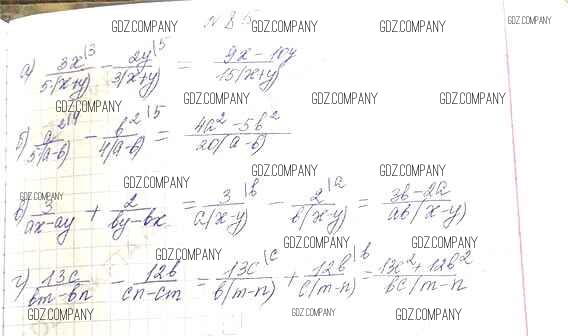 GDZ.COMPANY GDZ.COMPANY GDZ.COMPANY GDZ.COMPANY
а) 3x|3 / 5(x+y) - 2y|5 / 3(x+y) = 9x - 10y / 15(x+y)
GDZ.COMPANY GDZ.COMPANY GDZ.COMPANY GDZ.COMPANY
б) a²|4 / 5(a-b) - b²|5 / 4(a-b) = 4a² - 5b² / 20(a-b)
GDZ.COMPANY GDZ.COMPANY GDZ.COMPANY
в) 3 / ax-ay + 2 / by-bx = 3|b / a(x-y) - 2|a / b(x-y) = 3b-2a / ab(x-y)
GDZ.COMPANY GDZ.COMPANY GDZ.COMPANY
г) 13c / bm-bn - 12b / cn-cm = 13c|c / b(m-n) + 12b|b / c(m-n) = 13c²+12b² / bc(m-n
GDZ.COMPANY GDZ.COMPANY GDZ.COMPANY GDZ.COMPANY